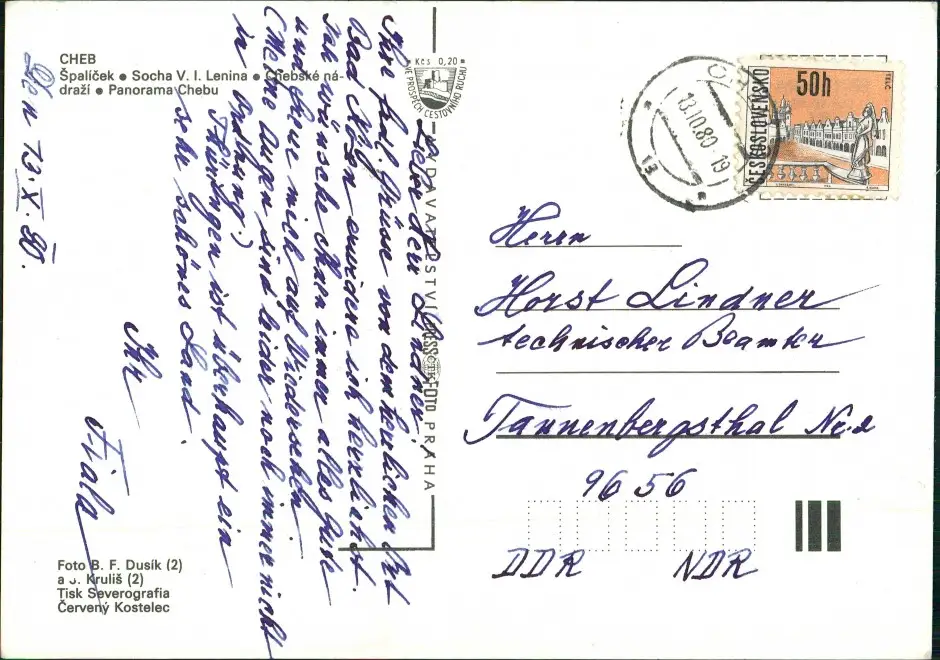 CHEB
Špalíček • Socha V. I. Lenina • Chebské ná-
draží • Panorama Chebu
Den 13.X.80.
Lieber Herr Lindner!
Ihre frdl. Grüsse von dem herrlichen Ort
Bad erwidere ich herzlichst.
Ich wünsche Ihnen immer alles Gute
und freue mich auf Wiedersehen.
(Meine Augen sind leider noch immer nicht
in Ordnung.)
Thüringen ist überhaupt ein
sehr schönes Land.
Ihr
Fiala
Foto B. F. Dusík (2)
a J. Kruliš (2)
Tisk Severografia
Červený Kostelec
Kčs 0,20
VE PROSPĚCH CESTOVNÍHO RUCHU
NADAVATELSTVÍ PRESSFOTO PRAHA
13.10.80-19
13
ČESKOSLOVENSKO
50h
TELČ
Herrn
Horst Lindner
technischer Beamter
Tannenbergsthal Nr. 2
9656
DDR NDR